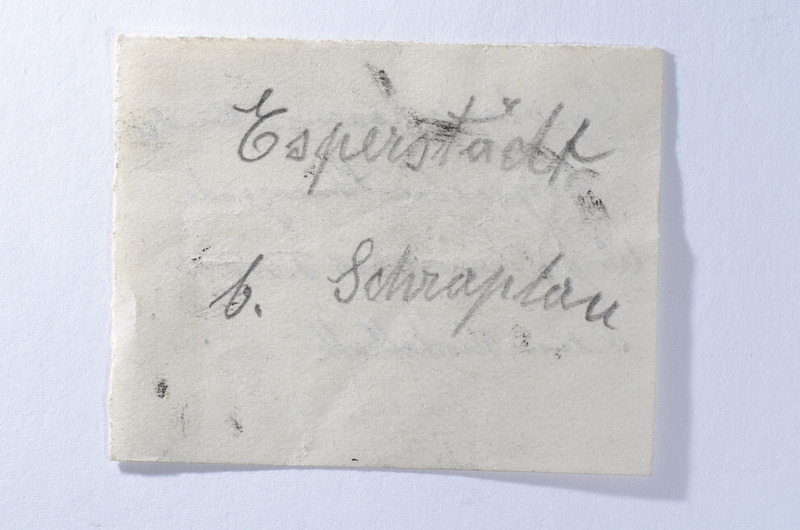 Esperstädt
b. Schraplau